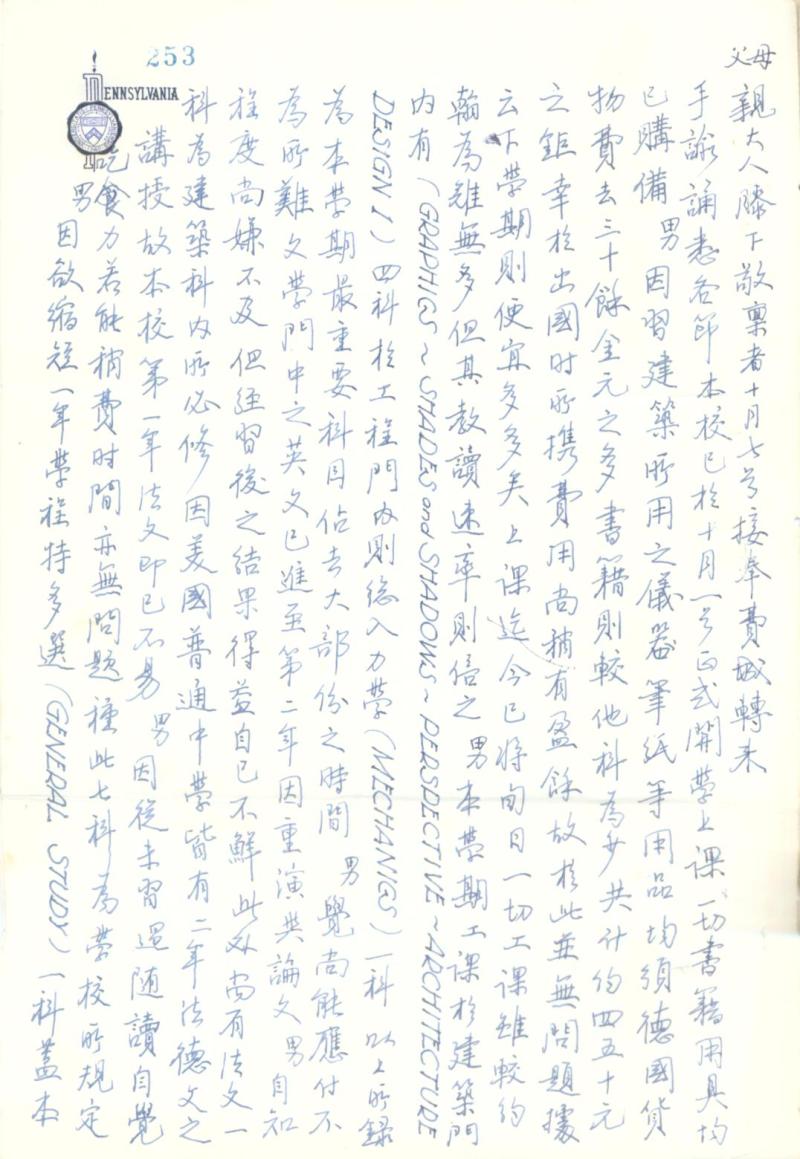 253
PENNSYLVANIA
父母親大人膝下敬稟者十月七号接奉費城轉来
手諭誦悉各節本校已於十月一号正式開學上課一切書籍用具均
已購備男因習建築所用之儀器筆紙等用品均須德國貨
物費去三十餘金元之多書籍則較他科為少共计约四五十元
之鉅幸於出國时所携費用尚稍有盈餘故於此並無問題據
云下學期则便宜多多矣上課迄今已将旬日一切工課雖較约
翰為雖無多但其教讀速率則倍之男本學期工課於建築門
内有(GRAPHICS~SHADES and SHADOWS~PERSPECTIVE~ARCHITECTURE
DESIGN I)四科於工程門内則總入力學(MECHANICS)一科以上所録
為本學期最重要科目佔去大部份之時間男覺尚能應付不
為所難文學門中之英文已進至第二年因重演與論文男自知
程度尚嫌不及但经習後之结果得益自已不鮮此外尚有法文一
科為建築科内所必修因美國普通中學皆有二年法德文之
講授故本校第一年法文即已不易男因從未習過随讀自覺
吃食力若能稍費时間亦無問题種此七科為學校所規定
男因欲縮短一年學程特多選(GENERAL STUDY)一科蓋本